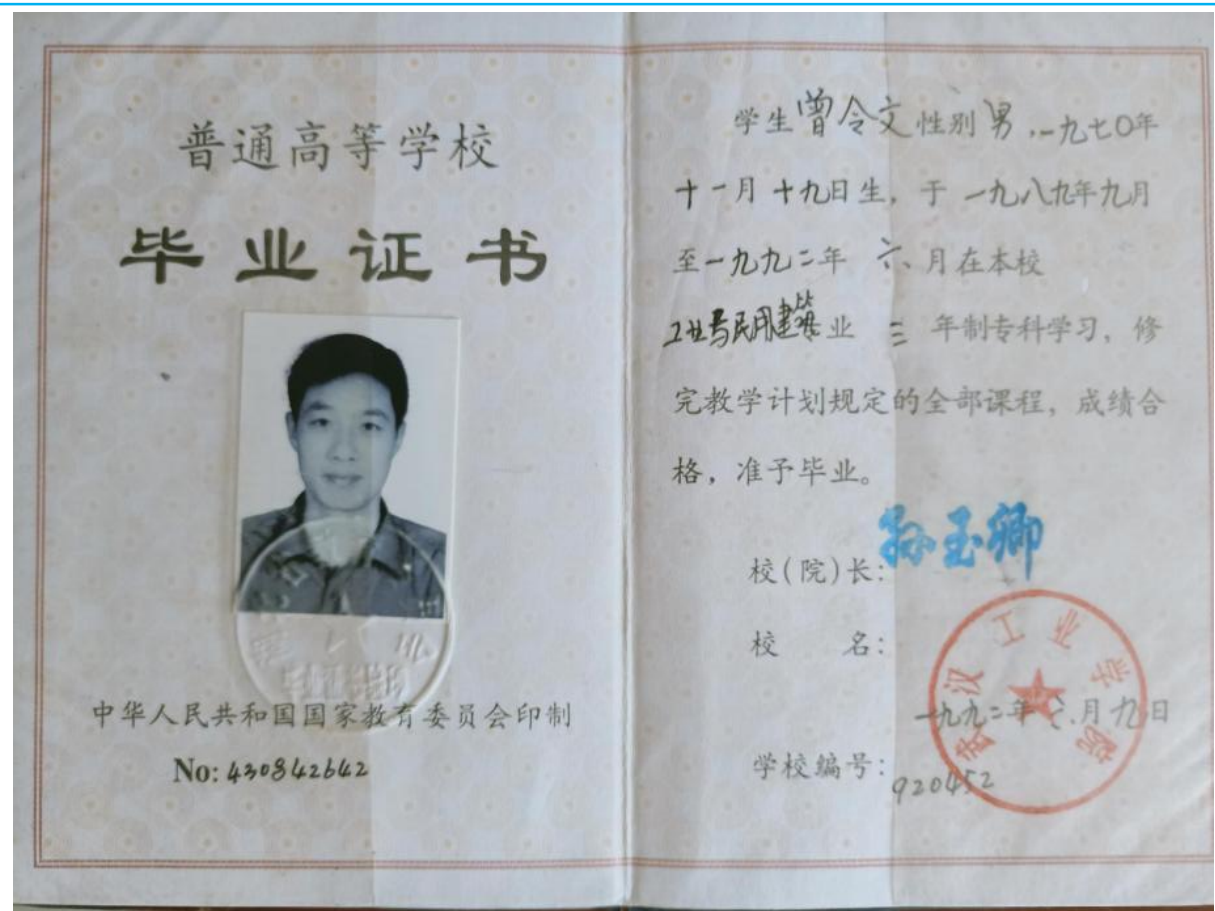 普通高等学校
毕业证书
中华人民共和国国家教育委员会印制
No: 430842642
学生曾令文性别男，一九七〇年
十一月十九日生，于一九八九年九月
至一九九二年六月在本校
工业与民用建筑专业三年制专科学习，修
完教学计划规定的全部课程，成绩合
格，准予毕业。
校(院)长:孙玉卿
校名:
武汉工业学院
一九九二年六月九日
学校编号:920452